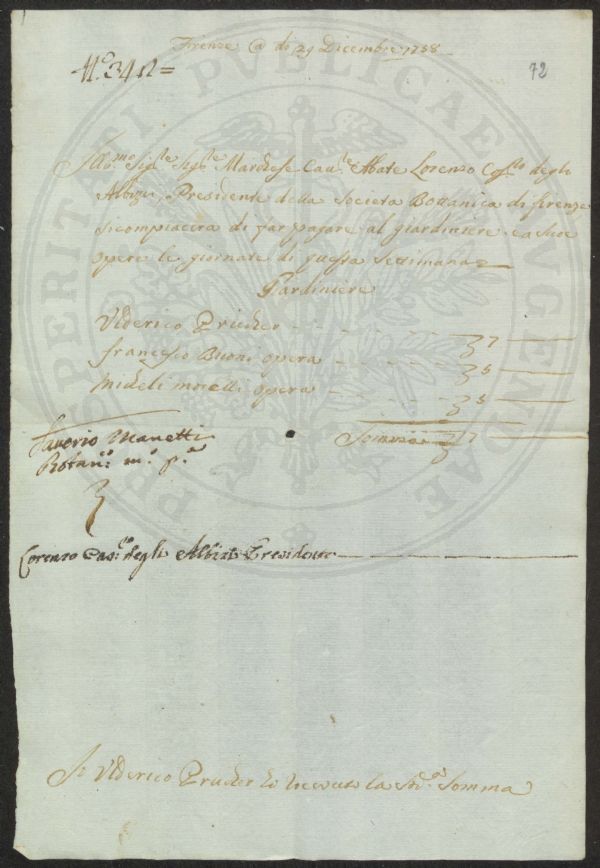 Firenze @ di 29 Dicembre 1758
N.º 342 =
72
Ill.mo Sig.re Sig.re Marchese Cav.re Abate Lorenzo degli
Albizi, Presidente della Societa Bottanica di firenze
si compiacera di far pagare al giardiniere, e a sue
opere le giornate di questa Settimana
Giardiniere
Vlderico Prucker
7
francesco Buoni opera
5
Micheli morelli opera
5
Somma
7
Saverio Manetti
Botan.º m.º p.ª
Lorenzo Cav.re degli Albizi Presidente
Io Vlderico Prucker ho riceuto la Sud.a Somma
PROSPERITATI PVBLICAE AVGENDAE